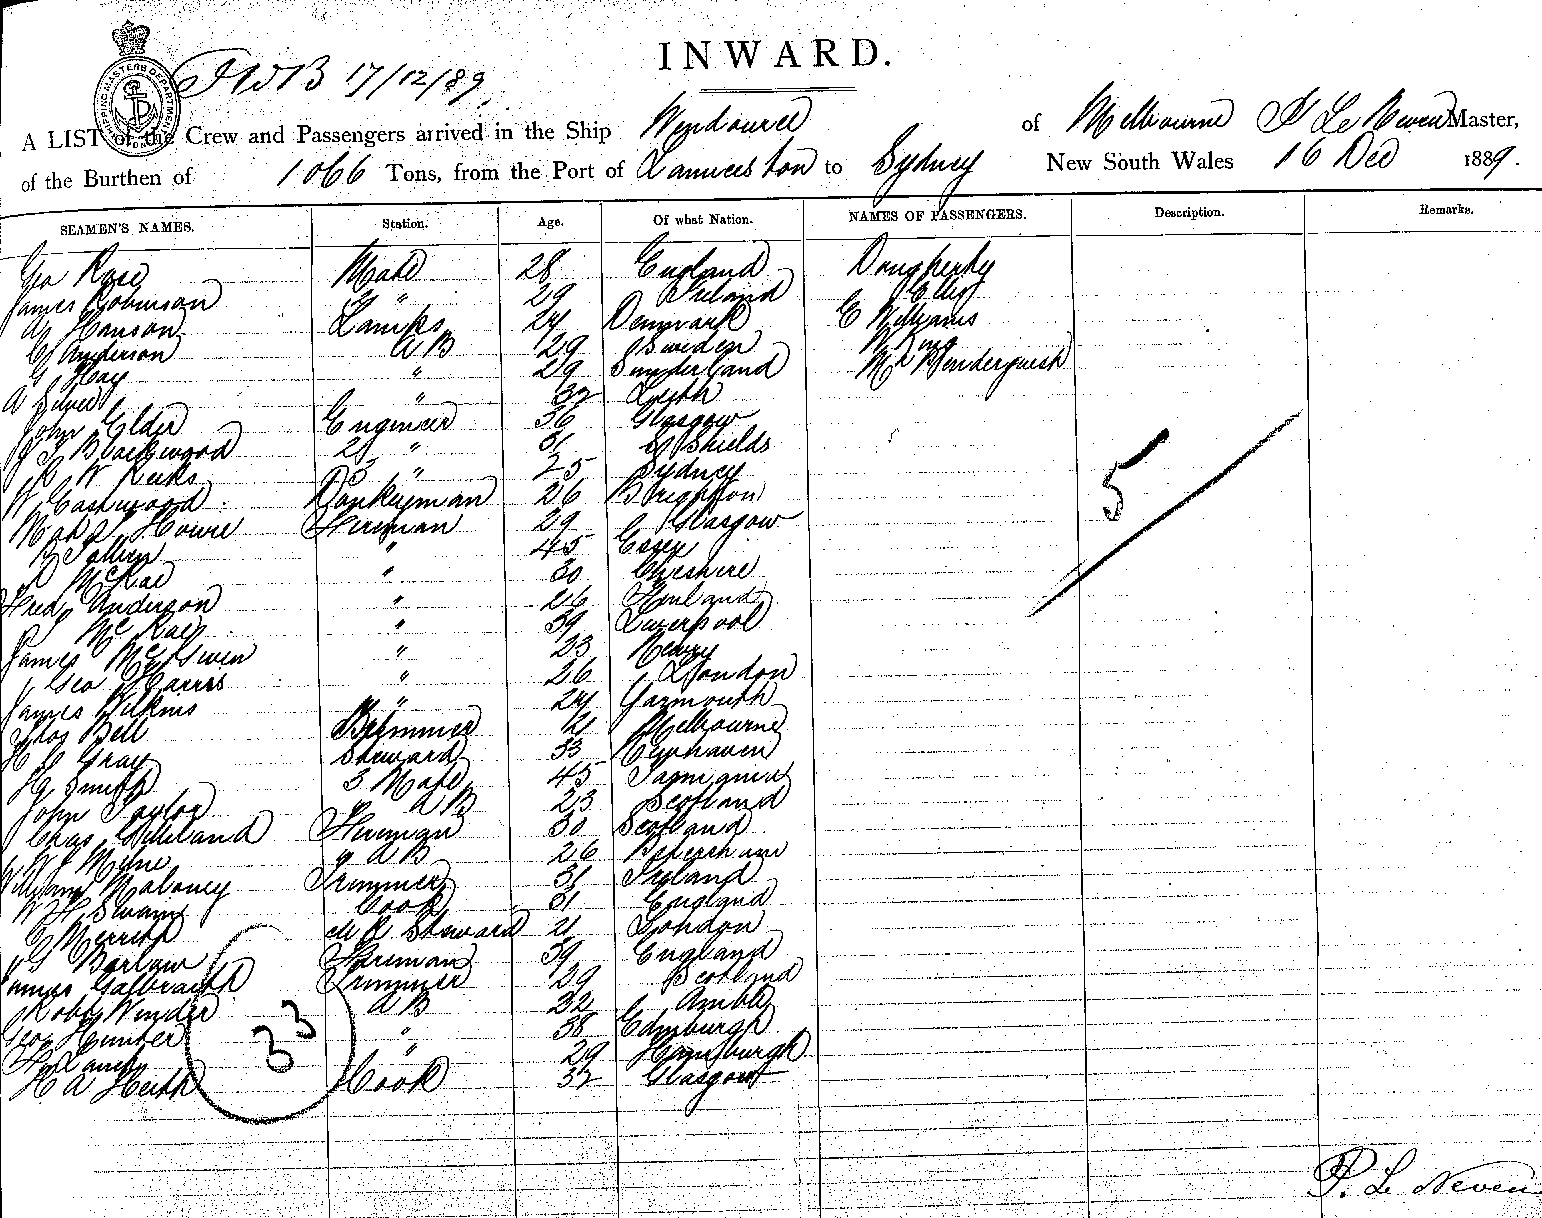 INWARD.
17/12/89
A LIST of the Crew and Passengers arrived in the Ship Wendouree of Melbourne P Le Neven Master,
of the Burthen of 1066 Tons, from the Port of Launceston to Sydney New South Wales 16 Dec 1889.
SEAMEN'S NAMES. Station. Age. Of what Nation. NAMES OF PASSENGERS. Description. Remarks.
Geo Rose Mate 28 England Dougherty
James Robinson 2 " 29 Ireland Ellis
Hanson Lamps 24 Denmark E Williams
C Anderson A B 29 Sweden W King
G Hay " 29 Sunderland Mr Pendergash
A " 32 Leith
John Elder Engineer 36 Glasgow
Blackwood 2 " 31 S Shields
R W Reeks 3 " 25 Sydney
W Eastwood Donkeyman 26 Brighton
Howie Fireman 29 Glasgow
" 45 Essex
McRae " 30 Cheshire
Fred Anderson " 26 Finland
McRae " 39 Liverpool
James McEwen " 23 Newry
Geo Harris " 26 London
James Wilkins " 24 Yarmouth
Thos Bell Trimmer 21 Melbourne
H C Gray Steward 33 Newhaven
Hy Smith 3 Mate 45 Tasmania
John Taylor A B 23 Scotland
Chas Gilleland Fireman 30 Scotland
W J Milne " A B 26
William Maloney Trimmer 31 Ireland
W H Swain Cook 31 England
Merrett M R Steward 21 London
Barlow Fireman 39 England
James Galbraith Trimmer 29 Scotland
Robt Winder A B 32 Amble
Geo Hunter " 38 Edinburgh
" 29 Hamburgh
H A Keith Cook 32 Glasgow
5
33
P. Le Neven